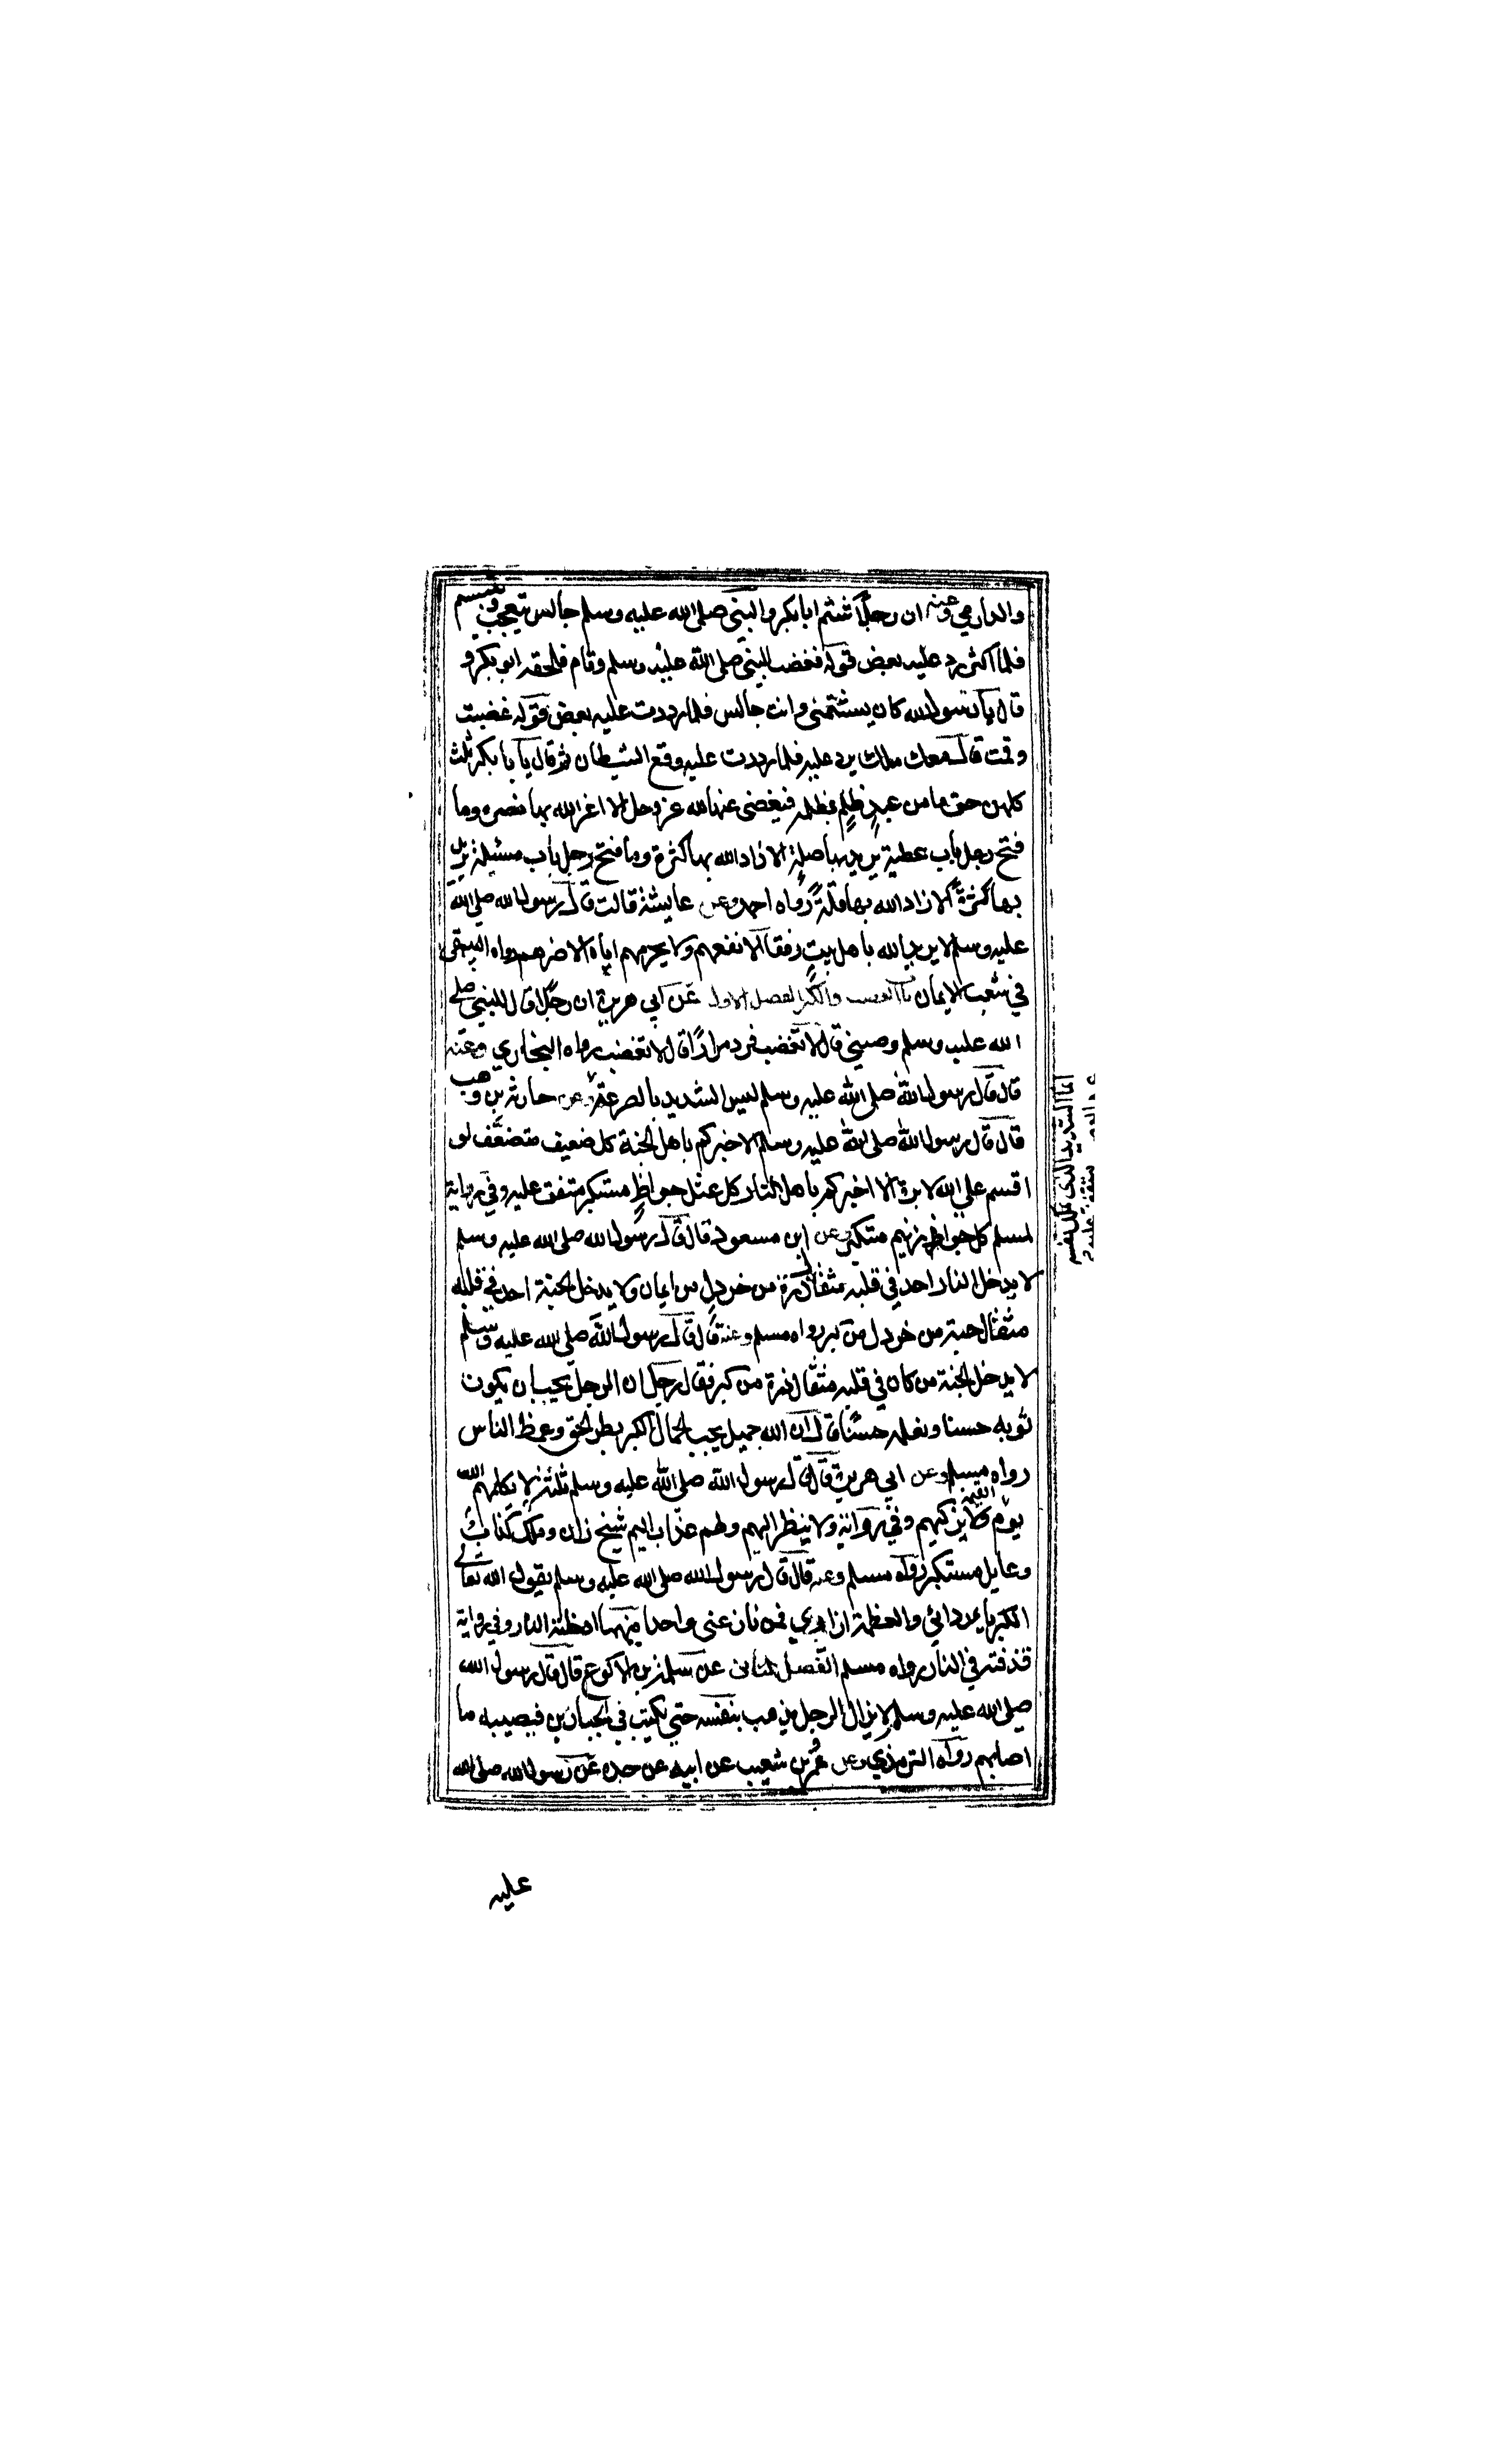 والدارمي وعنه ان رجلًا شتم ابابكر والنبي صلى الله عليه وسلم جالس يتعجب ويتبسم
فلما اكثر رد عليه بعض قوله فغضب النبي صلى الله عليه وسلم وقام فلحقه ابو بكر و
قال يا رسول الله كان يشتمني وانت جالس فلما رددت عليه بعض قوله غضبت
وقمت قال معك ملك يرد عليه فلما رددت عليه وقع الشيطان ثم قال يا با بكر ثلث
كلهن حق ما من عبدٍ ظلم بمظلمة فيغضى عنها لله عز وجل الا اعز الله بها نصره وما
فتح رجل باب عطية يريد بها صلة الا زاد الله بها كثرة وما فتح رجل باب مسئلة يريد
بها كثرةً الا زاد الله بها قلةً رواه احمد وعن عايشة قالت قال رسول الله صلى الله
عليه وسلم لا يريد الله باهل بيتٍ رفقا الا نفعهم ولا يحرمهم اياه الا ضرهم رواه البيهقي
في شعب الايمان باب الغضب والكبر الفصل الاول عن ابي هريرة ان رجلًا قال للنبي صلى
الله عليه وسلم وصيني قال لا تغضب فرد مرارًا قال لا تغضب رواه البخاري وعنه
قال قال رسول الله صلى الله عليه وسلم ليس الشديد بالصرعة وعن حارثة بن وهب
قال قال رسول الله صلى الله عليه وسلم الا اخبركم باهل الجنة كل ضعيف متضعَّف لو
اقسم على الله لابره الا اخبركم باهل النار كل عتل جواظٍ مستكبر متفق عليه وفي رواية
لمسلم كل جواظ زنيم متكبر وعن ابن مسعود قال قال رسول الله صلى الله عليه وسلم
لا يدخل النار احد في قلبه مثقال ذرة من خردلٍ من ايمان ولا يدخل الجنة احد في قلبه
مثقال حبة من خردل من كبر رواه مسلم وعنه قال قال رسول الله صلى الله عليه وسلم
لا يدخل الجنة من كان في قلبه مثقال ذرة من كبر فقال رجل ان الرجل يحب ان يكون
ثوبه حسنا ونعله حسنًا قال ان الله جميل يحب الجمال الكبر بطر الحق وغمط الناس
رواه مسلم وعن ابي هريرة قال قال رسول الله صلى الله عليه وسلم ثلثة لا يكلمهم الله
يوم القيمة ولا يزكيهم وفي رواية ولا ينظر اليهم ولهم عذاب اليم شيخ زان وملك كذاب
وعايل مستكبر رواه مسلم وعنه قال قال رسول الله صلى الله عليه وسلم يقول الله تعالى
الكبرياء ردائي والعظمة ازاري فمن نازعني واحدا منهما ادخلته النار وفي رواية
قذفته في النار رواه مسلم الفصل الثاني عن سلمة بن الاكوع قال قال رسول الله
صلى الله عليه وسلم لا يزال الرجل يذهب بنفسه حتى يكتب في الجبارين فيصيبه ما
اصابهم رواه الترمذي وعن عمرو بن شعيب عن ابيه عن جده عن رسول الله صلى الله
عليه
انما الشديد الذي يملك نفسه
عند الغضب متفق عليه